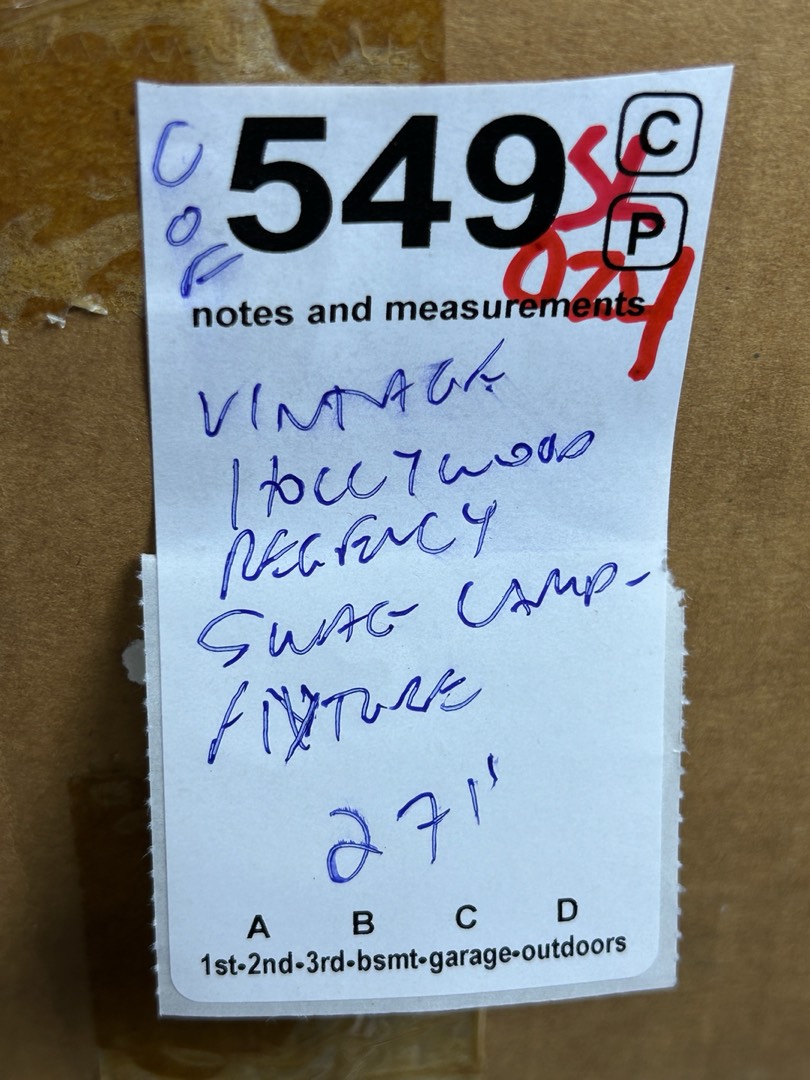 549
C
P
notes and measurements
VINTAGE
HOLLYWOOD
REGENCY
SWAG LAMP-
FIXTURE
A B C D
1st-2nd-3rd-bsmt-garage-outdoors